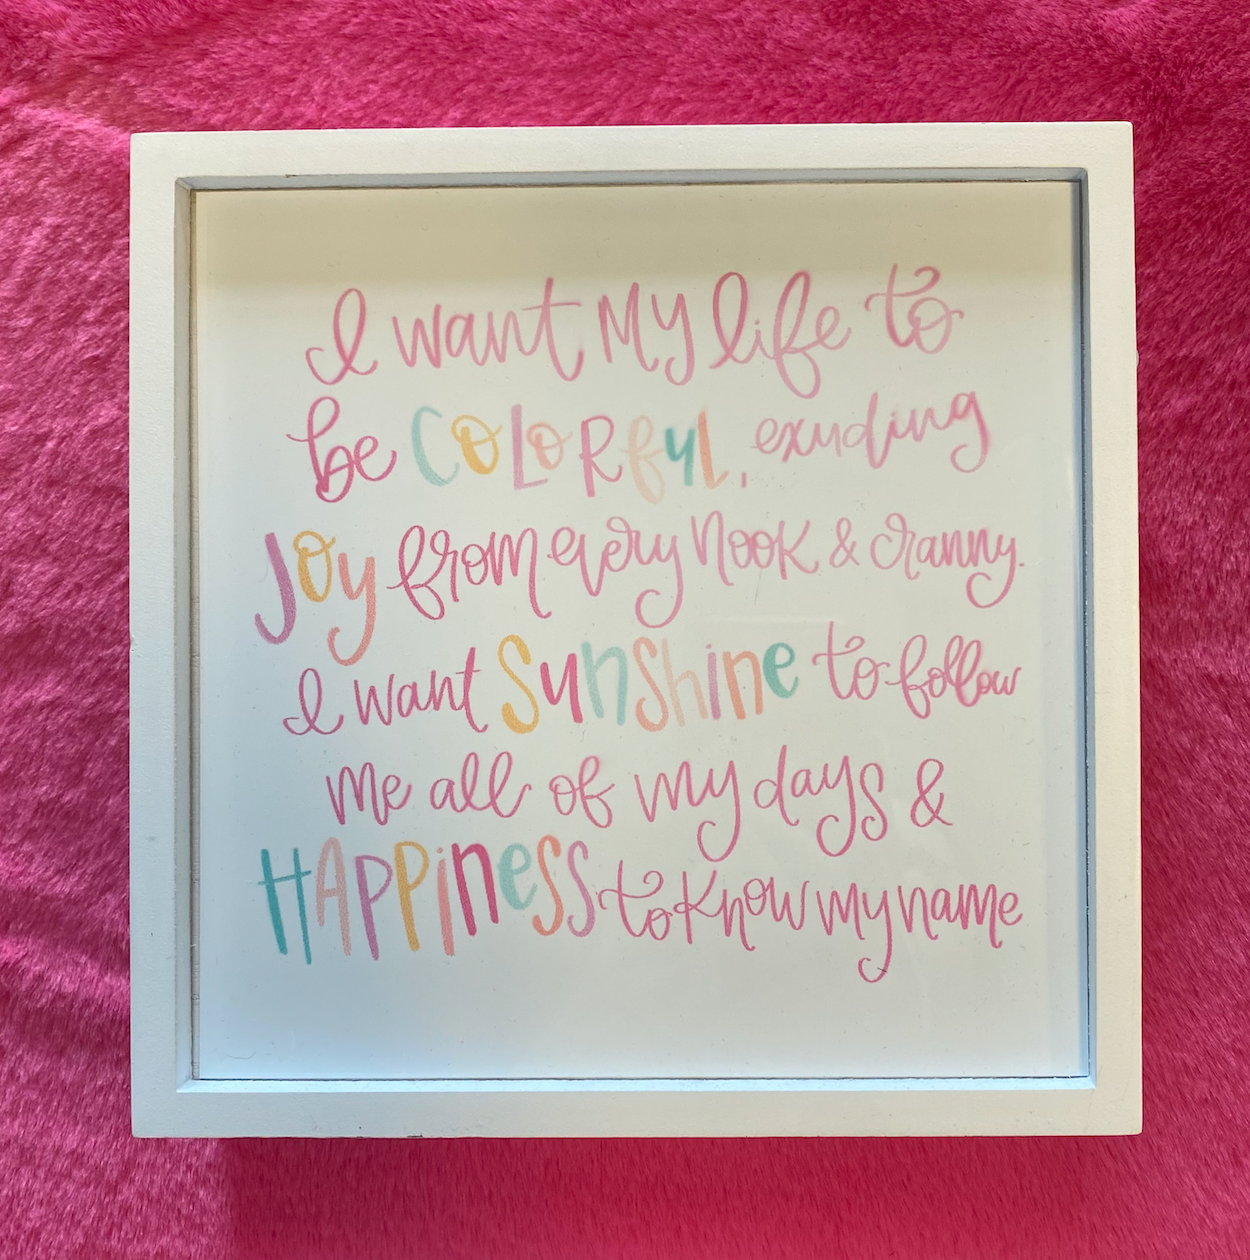 I want My life to
be COLORfuL, exuding
Joy from every Nook & cranny.
I want Sunshine to follow
Me all of my days &
HAPPiness to know my name